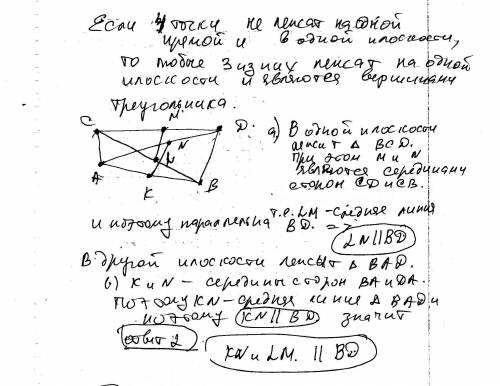 Если 4 точки не лежат на одной
прямой и в одной плоскости,
то любые 3 из них лежат на одной
плоскости и являются вершинами
треугольника.
C M D. а) В одной плоскости
N лежит Δ BCD.
A L При этом M и N
K B являются серединами
сторон CD и CB.
т.е. LM - средняя линия
и поэтому параллельна BD. =>
LN || BD
В другой плоскости лежит Δ BAD.
б) K и N - середины сторон BA и DA.
Поэтому KN - средняя линия Δ BAD и
поэтому KN || BD значит
ответ 2
KN и LM. || BD